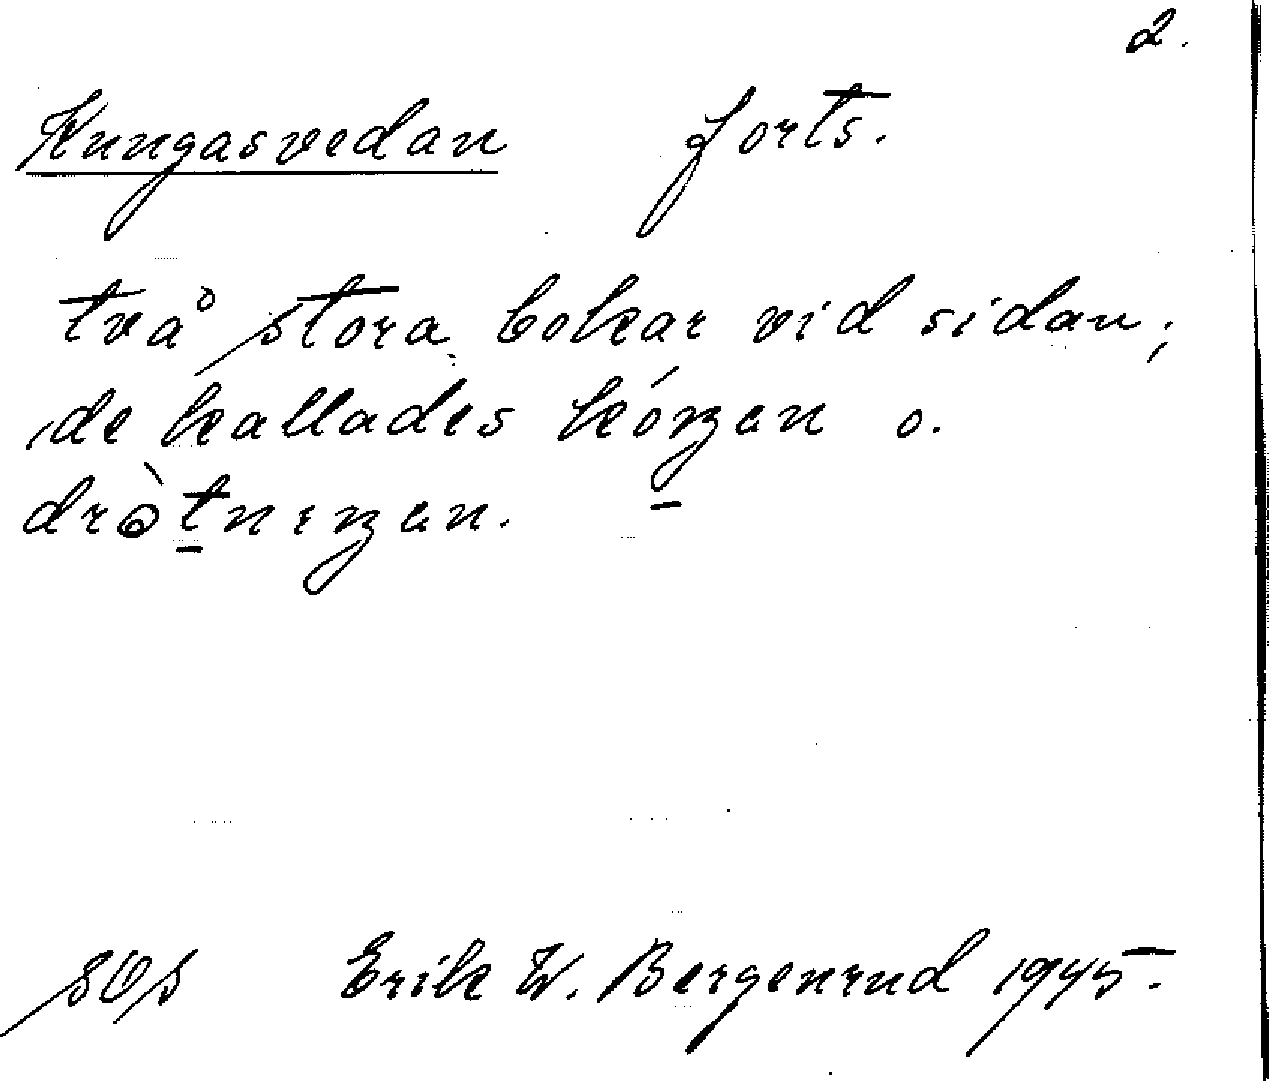 2.
Kungasvedan forts.
två stora bokar vid sidan;
de kallades kóŋɜan o.
dròtnɪŋɜan.
sOs Erik W. Bergenrud 1945.